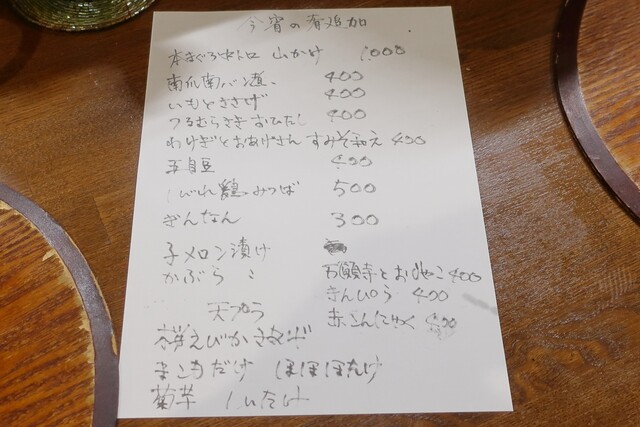 今宵の肴追加
本まぐろ中トロ 山かけ 1000
南瓜南バン煮 400
いもとささげ 400
つるむらさきおひたし 400
わけぎとおあげさん すみそ和え 400
五目豆 400
しびれ鶏みつば 500
ぎんなん 300
子メロン漬け
かぶら 〃 万願寺とおじゃこ 400
きんぴら 400
天プラ 赤こんにゃく 400
えびかきあげ
まこもだけ ほほほたけ
菊芋 しいたけ